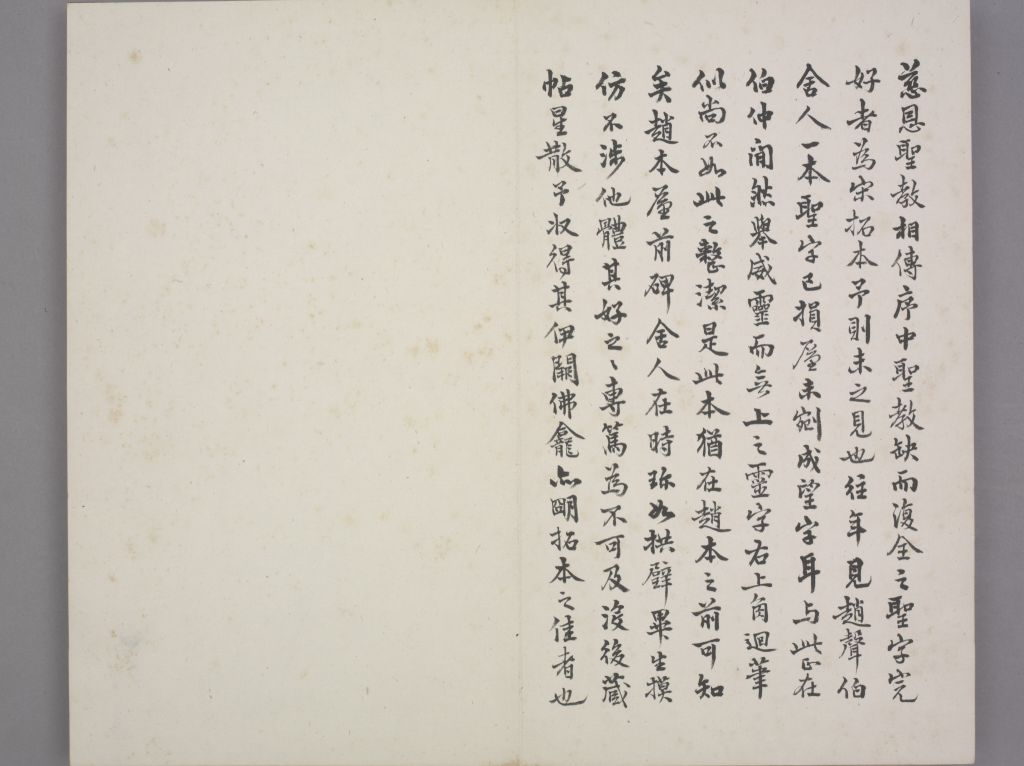 慈恩聖教相傳序中聖教缺而復全之聖字完
好者為宋拓本予則未之見也往年見趙聲伯
舍人一本聖字已損屋未剜成望字耳与此正在
伯仲間然舉威靈而無上之靈字右上角迴筆
似尚不如此之整潔是此本猶在趙本之前可知
矣趙本屋前碑舍人在時珎如拱璧畢生摸
仿不涉他體其好之〻專篤為不可及沒後藏
帖星散予収得其伊闕佛龕亦朙拓本之佳者也